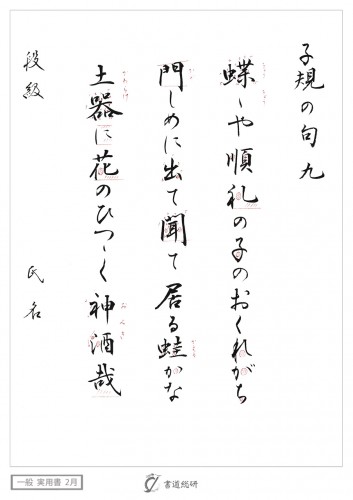 子規の句 九
蝶〻や順礼の子のおくれがち
門しめに出て聞て居る蛙かな
土器に花のひつゝく神酒哉
段級 氏名
一般 実用書 2月
書道総研